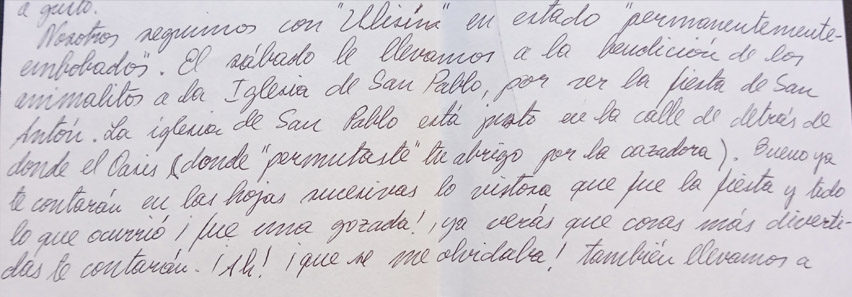 a gusto.
Nosotros seguimos con "Ulisins" en estado "permanentemente-
embobados". El sábado le llevamos a la bendición de los
animalitos a la Iglesia de San Pablo, por ser la fiesta de San
Antón. La iglesia de San Pablo está justo en la calle de detrás de
donde el Oasis (donde "permutaste" tu abrigo por la cazadora). Bueno ya
te contarán en las hojas sucesivas lo vistosa que fue la fiesta y todo
lo que ocurrió ¡fue una gozada!, ya verás que cosas más diverti-
das te contarán. ¡Ah! ¡que se me olvidaba! también llevamos a